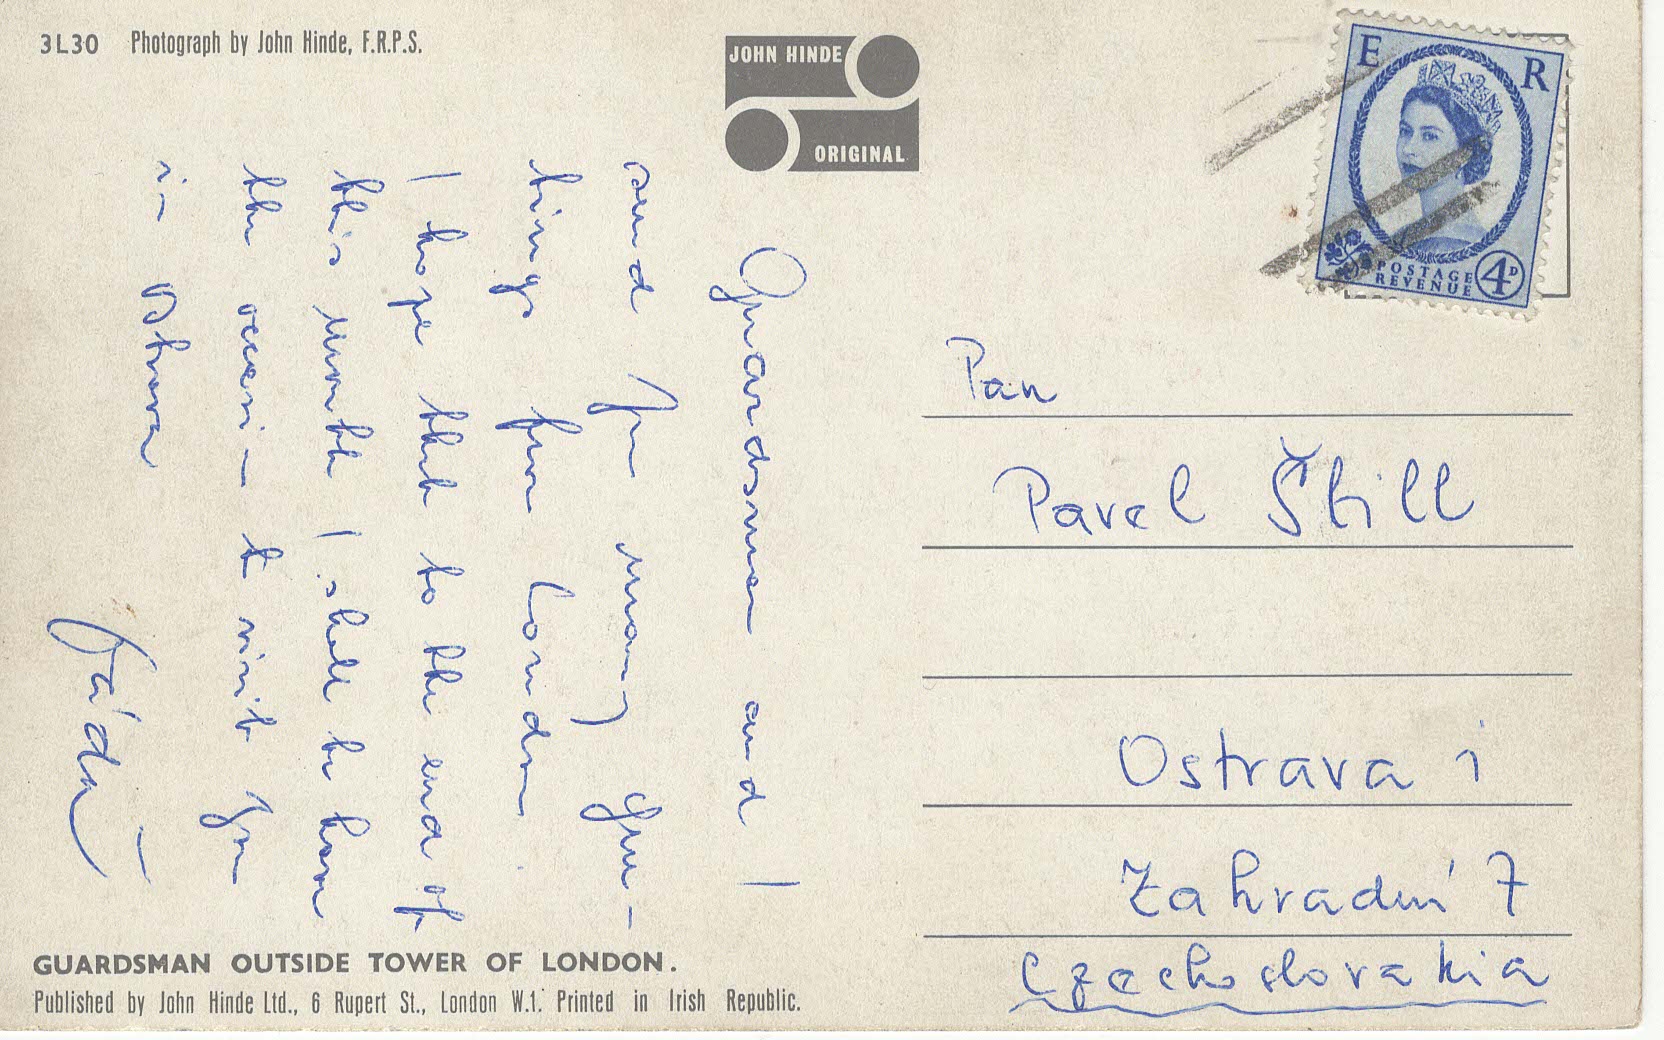 3L30 Photograph by John Hinde, F.R.P.S.
JOHN HINDE
ORIGINAL
E R
POSTAGE
REVENUE
4D
Guardsman and I
send you many gree-
tings from London.
I hope that to the end of
this month I shall be have
the occasion to visit you
in Ostrava
Jáda
Pan
Pavel Štill
Ostrava 1
Zahradní 7
Czechoslovakia
GUARDSMAN OUTSIDE TOWER OF LONDON.
Published by John Hinde Ltd., 6 Rupert St., London W.1. Printed in Irish Republic.